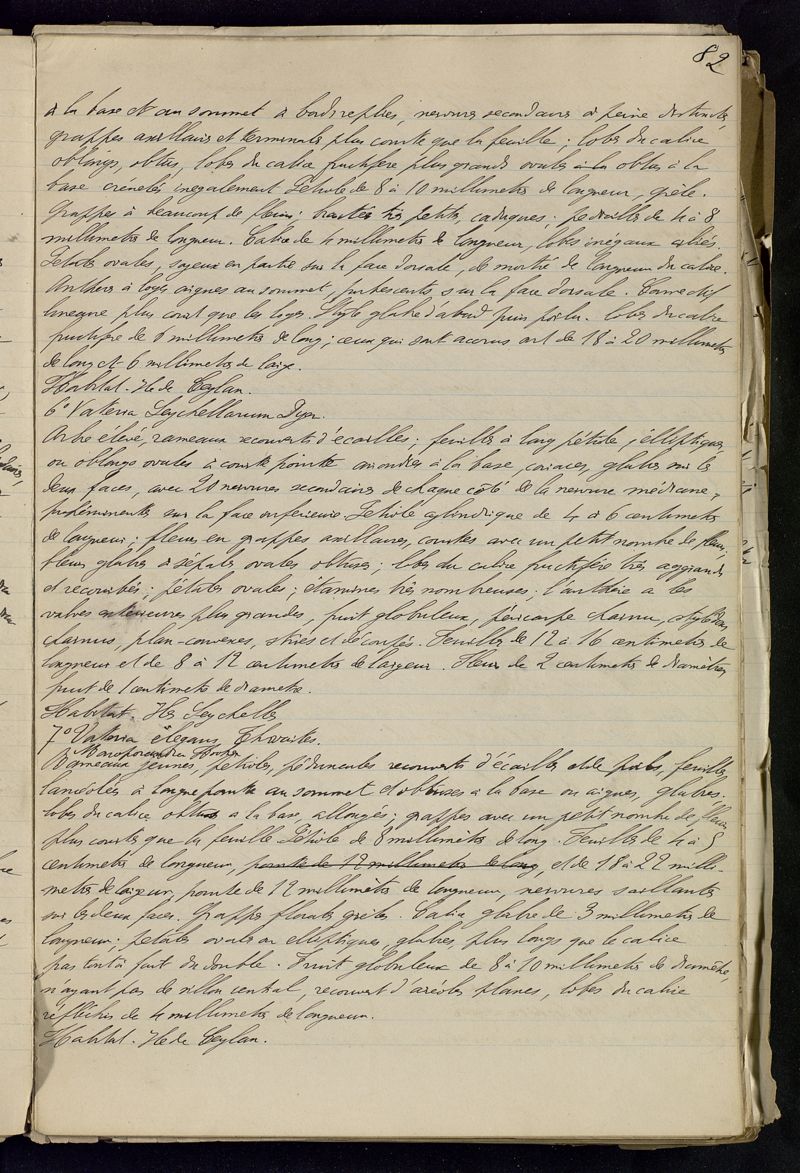 82
à la base et au sommet à bords repliés, nervures secondaires à peine distinctes
grappes axillaires et terminales plus courte que la feuille ; lobes du calice
oblongs, obtus, lobes du calice fructifère plus grands ovales à la obtus à la
base crénelés inégalement. Pétiole de 8 à 10 millimetres de longueur, grêle.
Grappes à beaucoup de fleurs ; bractées très petites, caduques ; pédicelles de 4 à 8
millimetres de longueur. Calice de 4 millimetres de longueur, lobes inégaux ciliés.
Pétales ovales, soyeux en partie sur la face dorsale, de moitié de longueur du calice.
Anthères à loges aigues au sommet, pubescents sur la face dorsale. Connectif
linéaire plus court que les loges. Style glabre d'abord, puis poilu. Lobes du calice
fructifère de 6 millimetres de long ; ceux qui sont accrus ont de 18 à 20 millimetres
de long et 6 millimetres de large.
Habitat. Ile de Ceylan.
6° Vateria Seychellarum Dyer.
Arbre élevé, rameaux recouverts d'écailles ; feuilles à long pétiole, elliptiques
ou oblongs ovales à courte pointe arrondies à la base, coriaces, glabres sur les
deux faces, avec 20 nervures secondaires de chaque côté de la nervure médiane,
proéminentes sur la face inférieure. Pétiole cylindrique de 4 à 6 centimetres
de longueur ; fleurs en grappes axillaires, courtes avec un petit nombre de fleurs,
fleurs glabres à sépales ovales obtuses ; lobes du calice fructifère très aggrandis
et recourbés ; pétales ovales ; étamines très nombreuses ; l'anthère a les
valves extérieures plus grandes, fruit globuleux, péricarpe charnu, cotylédons
charnus, plan-convexes, striés et découpés. Feuilles de 12 à 16 centimetres de
longueur et de 8 à 12 centimetres de largeur. Fleurs de 2 centimetres de diamètre,
fruit de 1 centimetre de diametre.
Habitat. Iles Seychelles
7° Vateria elegans, Thwaites.
Monoporandra
Rameaux jeunes, pétioles, péduncules recouverts d'écailles et de poils, feuilles
lancéolés à longue pointe au sommet et obtuses à la base ou aigues, glabres.
lobes du calice obtus à la base, allongés ; grappes avec un petit nombre de fleurs
plus courtes que la feuille. Pétiole de 8 millimètres de long. Feuilles de 4 à 5
centimetres de longueur, pointe de 12 millimetres de long, et de 18 à 22 milli-
metres de largeur, pointe de 12 millimètres de longueur, nervures saillantes
sur les deux faces. Grappes florales grêles. Calice glabre de 3 millimetres de
longueur ; pétales ovales ou elliptiques, glabres, plus longs que le calice
pas tout à fait du double. Fruit globuleux de 8 à 10 millimetres de diamètre,
n'ayant pas de sillon central, recouvert d'aréoles planes, lobes du calice
réfléchis de 4 millimetres de longueur.
Habitat. Ile de Ceylan.